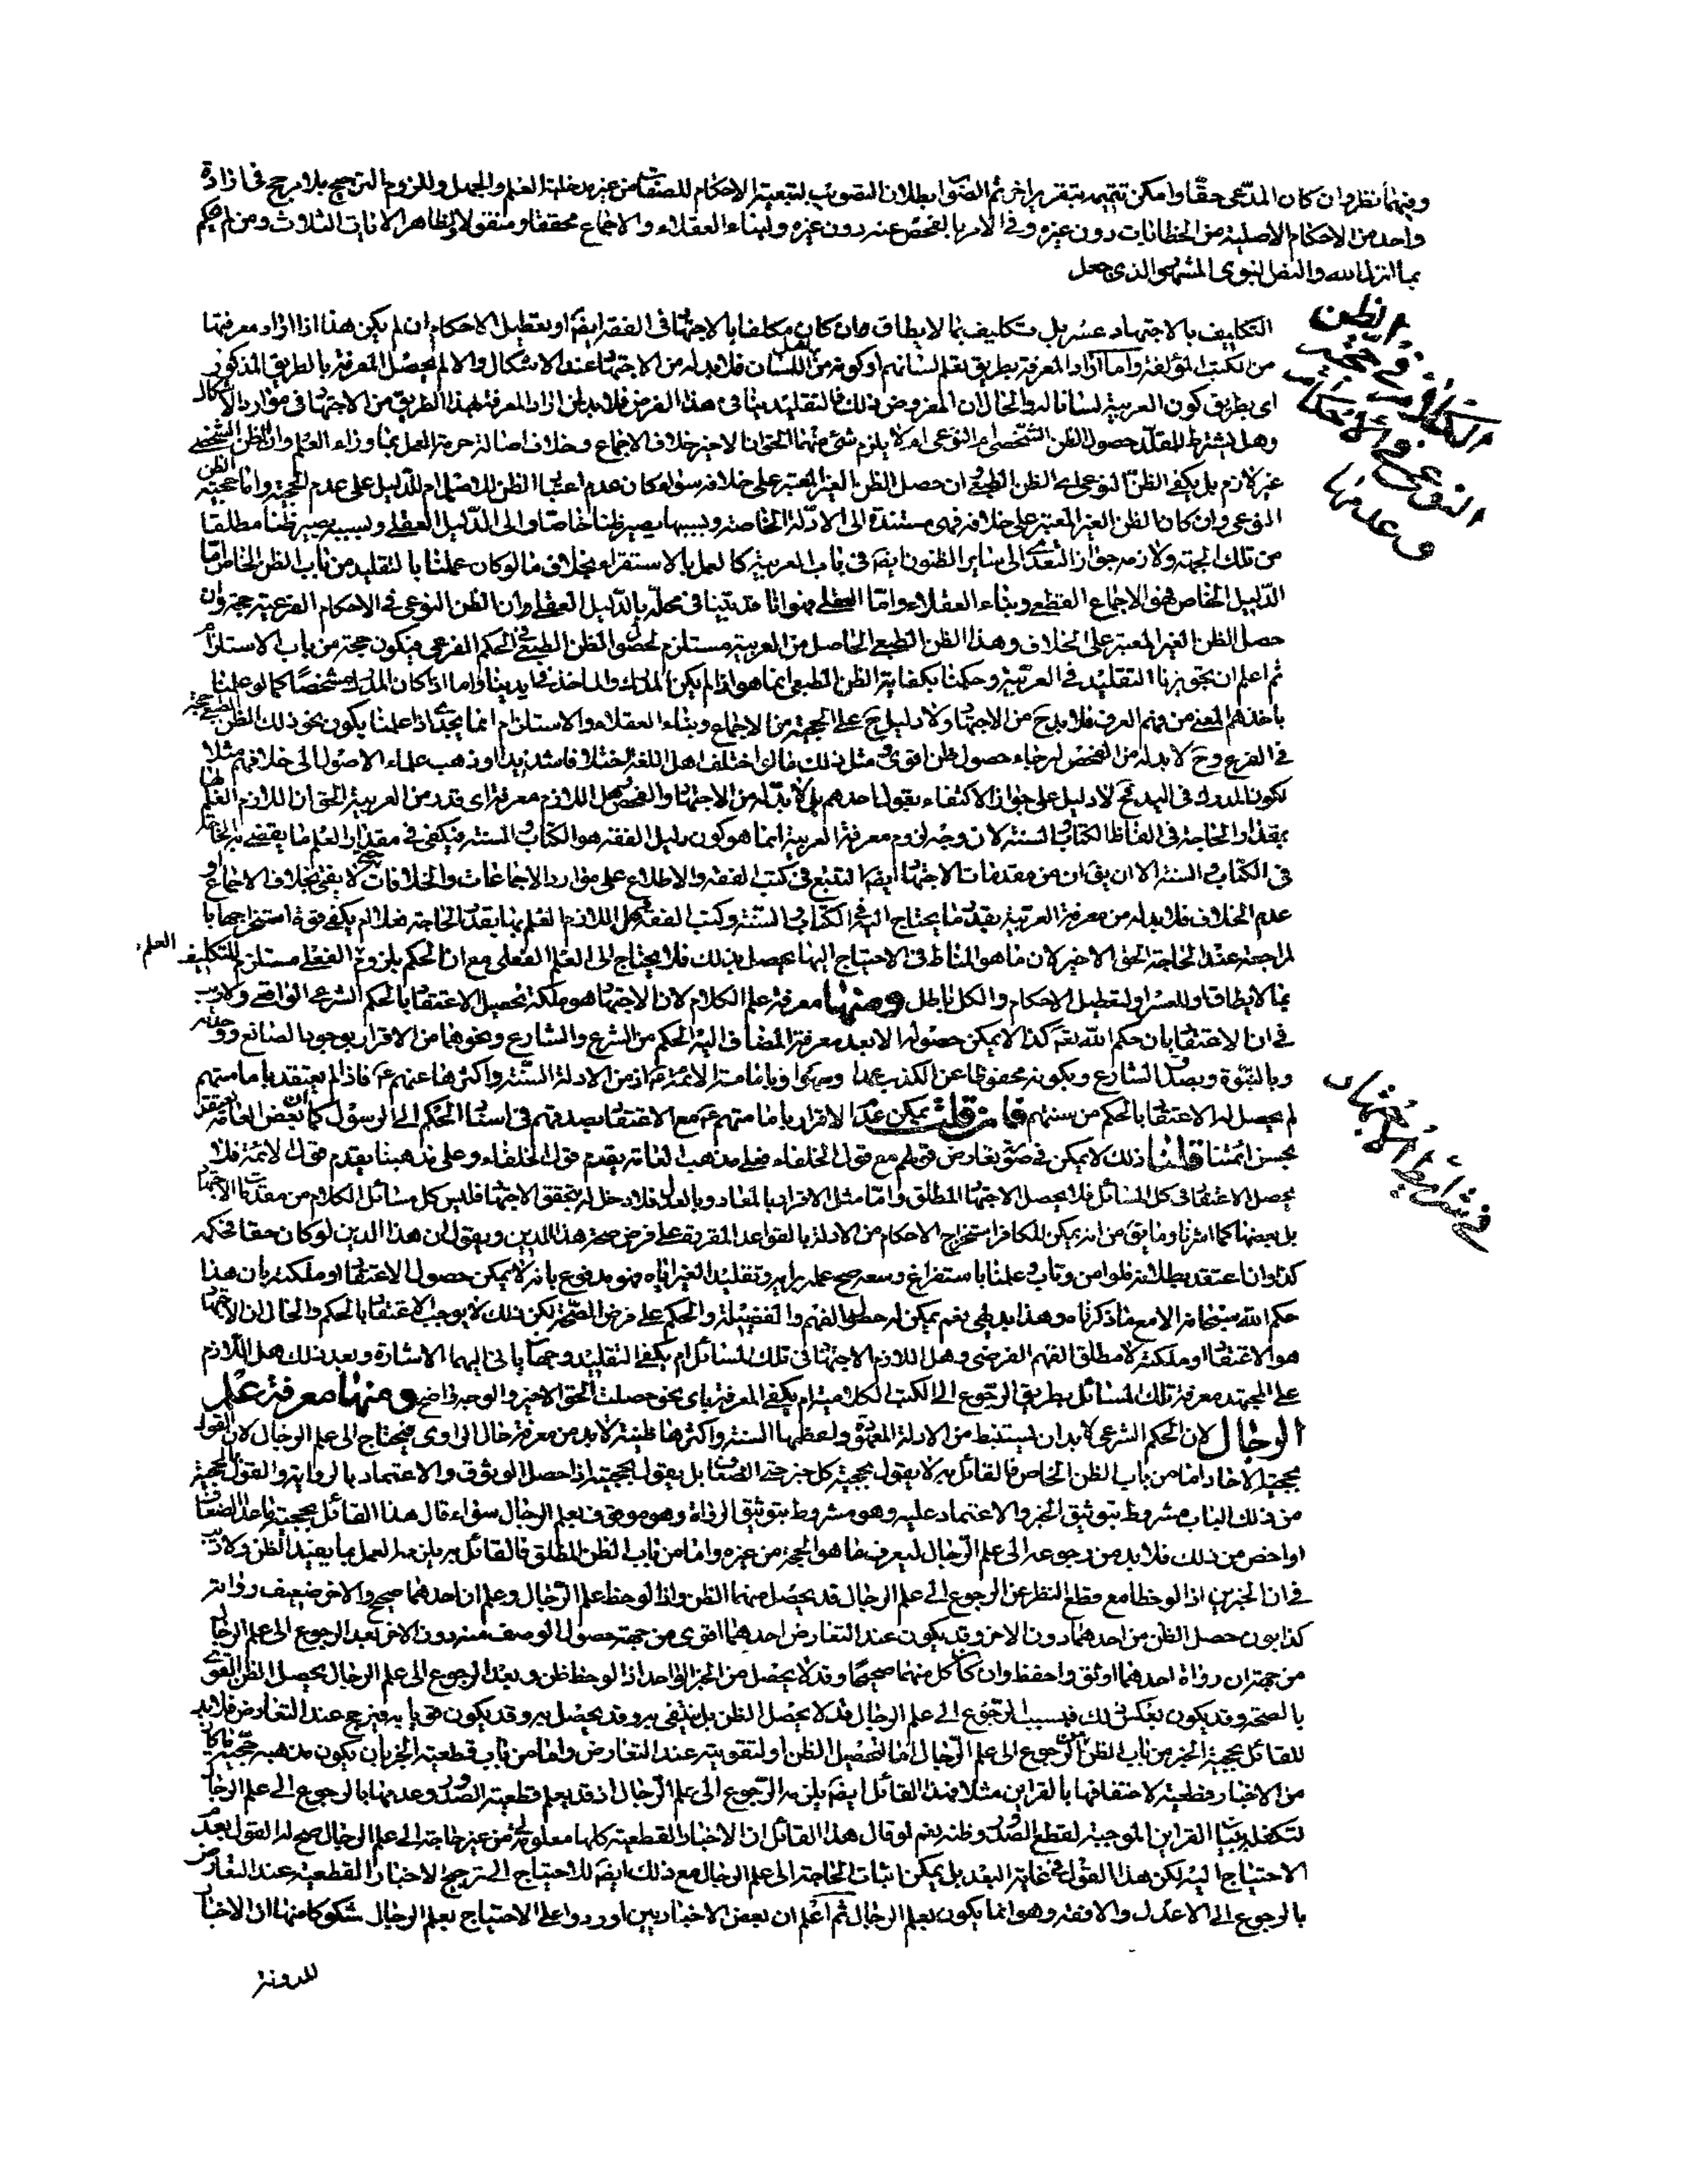 وفيهما نظر وان كان المدّعى حقّا وامكن تتميمه بتقرير اخر ثم الصّوا بطلان التصويب لتبعية الاحكام للصفات من غير مدخلية العلم والجهل وللزوم الترجيح بلا مرجح فى ارادة
واحد من الاحكام الاصلية من الخطابات دون غيره وفى الامر بالفحص عنه دون غيره ولبناء العقلاء والاجماع محققا ومنقولا ولظاهر الايات الثلاث ومن لم يحكم
بما انزل الله والنص النبوى المشهور الذى جعل
التكليف بالاجتهاد عسر بل تكليف بما لا يطاق وان كان مكلفا بالاجتهاد فى الفقه ايضا او بتعطيل الاحكام ان لم يكن هذا اذا اراد معرفتها
من الكتب المؤلفة واما اذا اراد المعرفة بطريق تعلم لسانهم او كونه من اهل اللسان فلا بد له من الاجتهاد عند الاشكال والا لم يحصل المعرفة بالطريق المذكور
اى بطريق كون العربية لسانا له والحال ان المفروض ذلك فالتقليد ينافى هذا الفرض فلا بد لمن اراد المعرفة بهذا الطريق من الاجتهاد فى موارد الاشكال
وهل يشترط للمقلد حصول الظن الشخصى ام النوعى ام لا يلزم شئ منهما الحق ان الاخير خلاف الاجماع وخلاف اصالة حرمة العمل بما وراء العلم وان الظن الشخصى
غير لازم بل يكفى الظن النوعى اى الظن الطبعى ان حصل الظن الغير المعتبر على خلافه سواء كان عدم اعتبار الظن للاصل ام للدليل على عدم الحجية واما حجية الظن
النوعى وان كان الظن الغير المعتبر على خلافه فهى مستندة الى الادلة الخاصة وبسببها يصير ظنا خاصا والى الدليل العقلى وبسببه يصير ظنا مطلقا
من تلك الجهة ولازمه جواز التعدى الى سائر الظنون ايضا فى باب العربية كالعمل بالاستقراء بخلاف ما لو كان عملنا بالتقليد من باب الظن الخاص امّا
الدليل الخاص فهو الاجماع القطعى وبناء العقلاء وامّا العقلى فهو انا قد بينا فى محله بالدليل العقلى ان الظن النوعى فى الاحكام الفرعية حجة وان
حصل الظن الغير المعتبر على الخلاف وهذا الظن الطبعى الحاصل من العربية مستلزم لحصول الظن الطبعى فى الحكم الفرعى فيكون حجة من باب الاستلزام
ثم اعلم ان تجويزنا التقليد فى العربية وحكمنا بكفاية الظن الطبعى انما هو اذا لم يكن المدرك والماخذ فى ايدينا واما اذا كان المدرك مشخصًا كما لو علمنا
باخذهم المعنى من فهم العرف فلا بد ح من الاجتهاد ولا دليل ح على الحجية من الاجماع وبناء العقلاء والاستلزام انما يجدى اذا علمنا بكون نحو ذلك الظن الطبعى حجة
فى الفرع وح لا بد له من الفحص لرجاء حصول ظن اقوى ومثل ذلك ما لو اختلف اهل اللغة اختلافا شديدا او ذهب علماء الاصول الى خلافهم مثلا
لكون المدرك فى اليد فح لا دليل على جواز الاكتفاء بقول احدهم بل لا بد له من الاجتهاد والفحص وهل اللازم معرفة اى قدر من العربية الحق ان اللازم العلم لها
بمقدار الحاجة فى الفاظ الكتاب والسنة لان وجه لزوم معرفة العربية انما هو كون دليل الفقه هو الكتاب والسنة فيكفى فى مقدار العلم ما يقضى به الحاجة
فى الكتاب والسنة الا ان يق ان من مقدمات الاجتهاد ايضا التتبع فى كتب الفقه والاطلاع على موارد الاجماعات والخلافات حتى لا يفتى بخلاف الاجماع او
عدم الخلاف فلا بد له من معرفة العربية بقدر ما يحتاج اليه فى الكتاب والسنة وكتب الفقه وهل اللازم العلم بها بقدر الحاجة فعلا ام يكفى قوة استخراجها با
لمراجعة عند الحاجة الحق الاخير لان ما هو المناط فى الاحتياج اليها يحصل بذلك فلا يحتاج الى العلم الفعلى مع ان الحكم بلزوم الفعلى مستلزم للتكليف العلم
بما لا يطاق او للعسر او لتعطيل الاحكام والكل باطل ومنها معرفة علم الكلام لان الاجتهاد هو ملكة تحصيل الاعتقاد بالحكم الشرعى الواقعى ولا ريب
فى ان الاعتقاد بان حكم الله تعم كذا لا يمكن حصوله الا بعد معرفة المضاف اليه الحكم من الشرع والشارع ونحوهما من الاقرار بوجوب الصانع ووحدته
وبالنبوة وبصدق الشارع وبكونه محفوظا عن الكذب عمدا وسهوا وبامامة الائمة عم اذ من الادلة السنة واكثرها عنهم عم فاذا لم يعتقد بامامتهم
لم يحصل له الاعتقاد بالحكم من سنتهم فان قلت يمكن عدم الاقرار بامامتهم عم مع الاعتقاد بصدقهم فى اسناد الحكم الى الرسول كما ان بعض العامة يعتقد
بحسن ائمتنا قلنا ذلك لا يمكن فى صورة تعارض قولهم مع قول الخلفاء فعلى مذهب العامة يقدم قول الخلفاء وعلى مذهبنا يقدم قول الائمة فلا
يحصل الاعتقاد فى كل المسائل فلا يحصل الاجتهاد المطلق وامّا مثل الاقرار بالمعاد وبالعدل فلا دخل له بتحقق الاجتهاد فليس كل مسائل الكلام من مقدمات الاجتهاد
بل بعضها كما اشرنا وما يق من انه يمكن للكافر استخراج الاحكام من الادلة بالقواعد المقررة على فرض صحة هذا الدين ويقول ان هذا الدين لو كان حقا فحكمه
كذا وانا اعتقد بطلانه فلو امن وتاب وعلمنا باستفراغ وسعه صح عمله برايه وتقليد الغير اياه فهو مدفوع بانه لا يمكن حصول الاعتقاد او ملكته بان هذا
حكم الله سبحانه الا مع ما ذكرناه وهذا بديهى نعم يمكن له حصول الفهم والفضيلة والحكم على فرض الصحة لكن ذلك لا يوجب الاعتقاد بالحكم والحال ان الاجتهاد
هو الاعتقاد او ملكته لا مطلق الفهم الفرضى وهل اللازم الاجتهاد فى تلك المسائل ام يكفى التقليد وجهان ياتى اليهما الاشارة وبعد ذلك هل اللازم
على المجتهد معرفة تلك المسائل بطريق الرجوع الى الكتب الكلامية ام يكفى المعرفة باى نحو حصلت الحق الاخير والوجه واضح ومنها معرفة علم
الرجال لان الحكم الشرعى لا بد ان يستنبط من الادلة المعهودة واعظمها السنة واكثرها ظنية لا بد من معرفة حال الراوى فيحتاج الى علم الرجال لان القول
بحجية الاخاد اما من باب الظن الخاص فالقائل به لا يقول بحجية كل خبر حتى الضعاف بل يقول بحجيته اذا حصل الوثوق والاعتماد بالرواية والقول بالحجية
من ذلك الباب مشروط بتوثيق الخبر والاعتماد عليه وهو مشروط بتوثيق الرواة وهو موقوف بعلم الرجال سواء قال هذا القائل بحجية ما عدا الضعاف
او اخص من ذلك فلا بد من رجوعه الى علم الرجال ليعرف ما هو الحجة من غيره واما من باب الظن المطلق فالقائل به يلزمه العمل بما يفيد الظن ولا ريب
فى ان الخبرين اذا لوحظا مع قطع النظر عن الرجوع الى علم الرجال قد يحصل منهما الظن واذا لوحظ علم الرجال وعلم ان احدهما صحيح والاخر ضعيف رواته
كذابون حصل الظن من احدهما دون الاخر وقد يكون عند التعارض احدهما اقوى من جهة حصول الوصف منه دون الاخر بعد الرجوع الى علم الرجال
من جهة ان رواة احدهما اوثق واحفظ وان كان كل منهما صحيحا وقد لا يحصل من الخبر الواحد اذا لوحظ ظن وبعد الرجوع الى علم الرجال يحصل الظن القوى
بالصحة وقد يكون بعكس ذلك فبسبب الرجوع الى علم الرجال قد لا يحصل الظن بل ينتفى به وقد يحصل به وقد يكون قويا به فيرجح عند التعارض فلا بد
للقائل بحجية الخبر من باب الظن من الرجوع الى علم الرجال اما لتحصيل الظن او لتقويته عند التعارض واما من باب قطعية الخبر بان يكون مذهبه حجية ما كان
من الاخبار قطعية لاحتفافها بالقراين مثلا فهذا القائل ايضا يلزمه الرجوع الى علم الرجال اذ قد يعلم قطعية الصدور وعدمها بالرجوع الى علم الرجال
لتكفله ببيان القراين الموجبة لقطع الصدور وظنه نعم لو قال هذا القائل ان الاخبار القطعية كلها معلومة من غير حاجة الى علم الرجال صح له القول بعدم
الاحتياج اليه لكن هذا القول فى غاية البعد بل يمكن اثبات الحاجة الى علم الرجال مع ذلك ايضا للاحتياج الى ترجيح الاخبار القطعية عند التعارض
بالرجوع الى الاعدل والافقه وهو انما يكون بعلم الرجال ثم اعلم ان بعض الاخباريين اوردوا على الاحتياج بعلم الرجال شكوكا منها ان الاخبار
المدونة
فى شرائط الاجتهاد